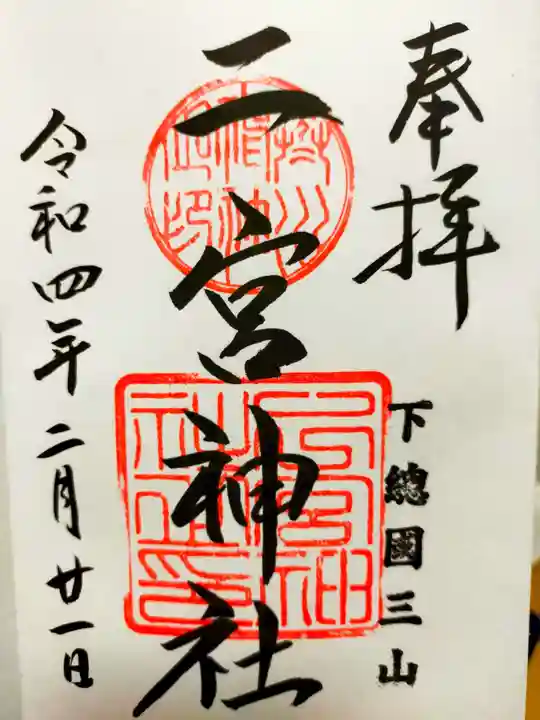 奉拝
下總國三山
二宮神社
令和四年二月廿一日